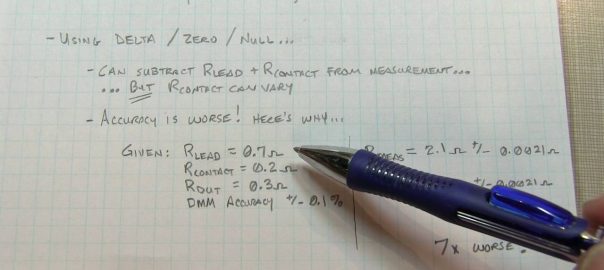 - USING DELTA / ZERO / NULL...
- CAN SUBTRACT RLEAD + RCONTACT FROM MEASUREMENT...
... BUT RCONTACT CAN VARY
- ACCURACY IS WORSE! HERE'S WHY...
GIVEN: RLEAD = 0.7Ω
RCONTACT = 0.2Ω
ROUT = 0.3Ω
DMM ACCURACY +/- 0.1%
= 2.1Ω +/- 0.0021Ω
+/- 0.0021Ω
7x WORSE.